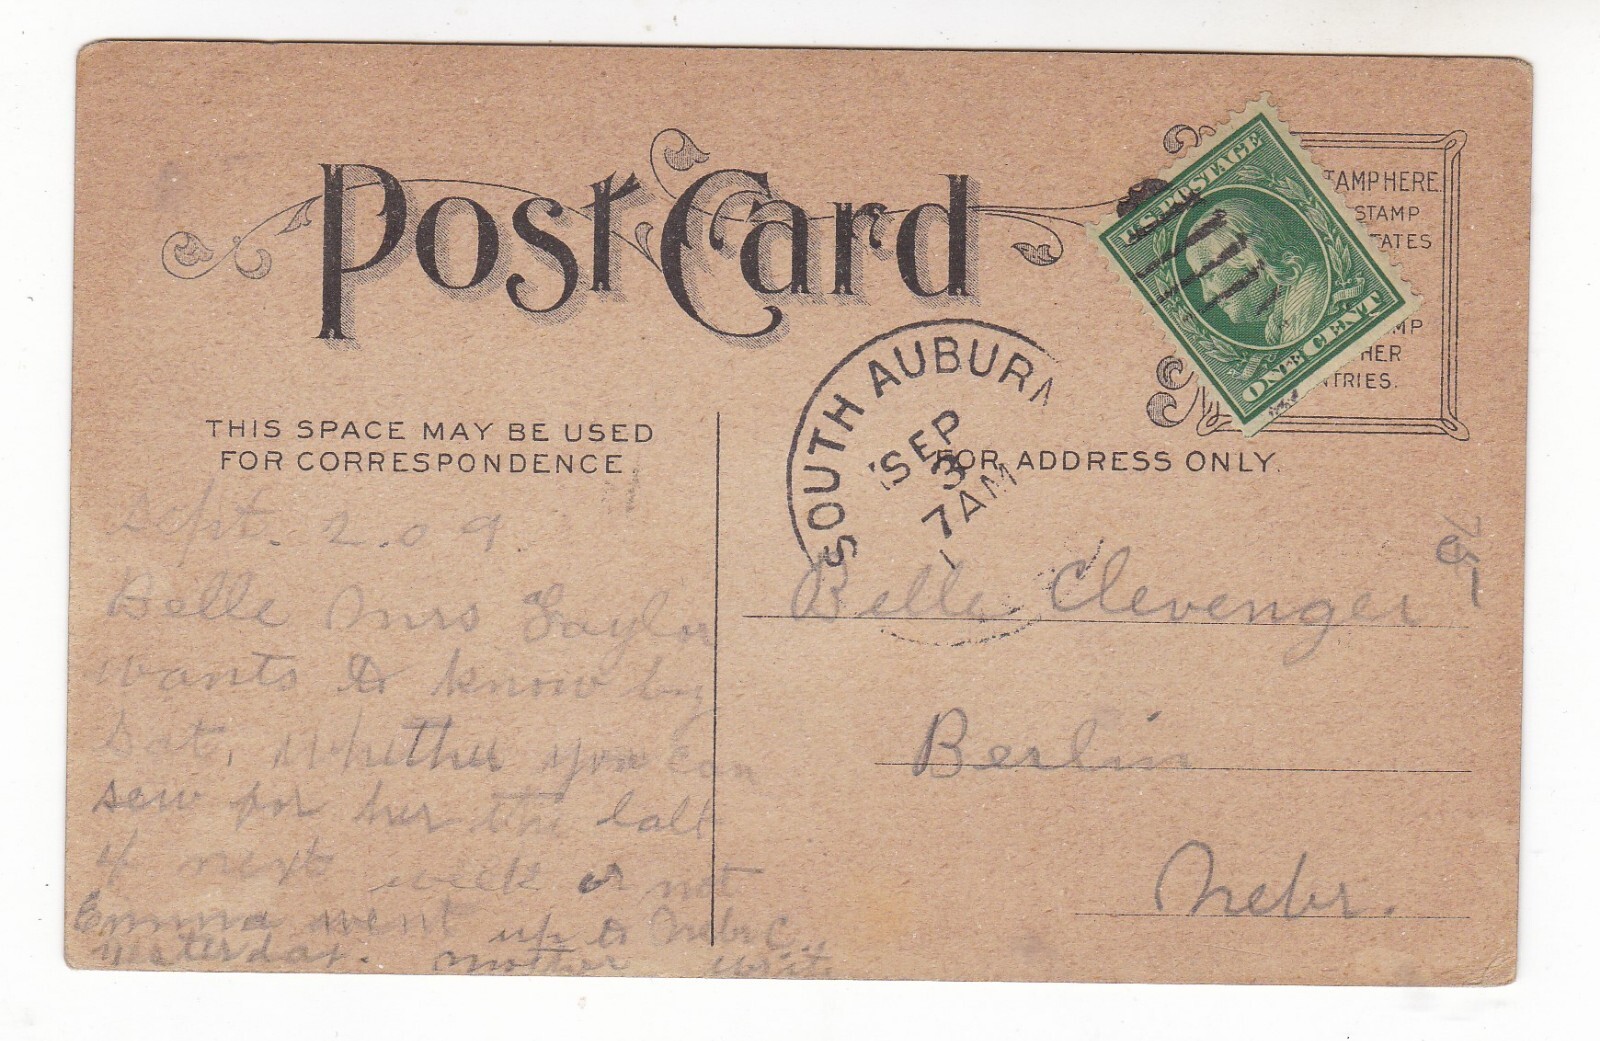 Post Card
U.S. POSTAGE
ONE CENT
TAMP HERE.
STAMP
TATES
MP
HER
NTRIES.
SOUTH AUBURN
SEP
3
7 AM
THIS SPACE MAY BE USED
FOR CORRESPONDENCE.
FOR ADDRESS ONLY.
Sept. 2. 09.
Belle Mrs Gaylor
wants to know by
Sat, whether you can
sew for her the last
of next week or not
Emma went up to Nebr C.
yesterday. Mother writ.
Belle Clevenger
Berlin
Nebr.
75-